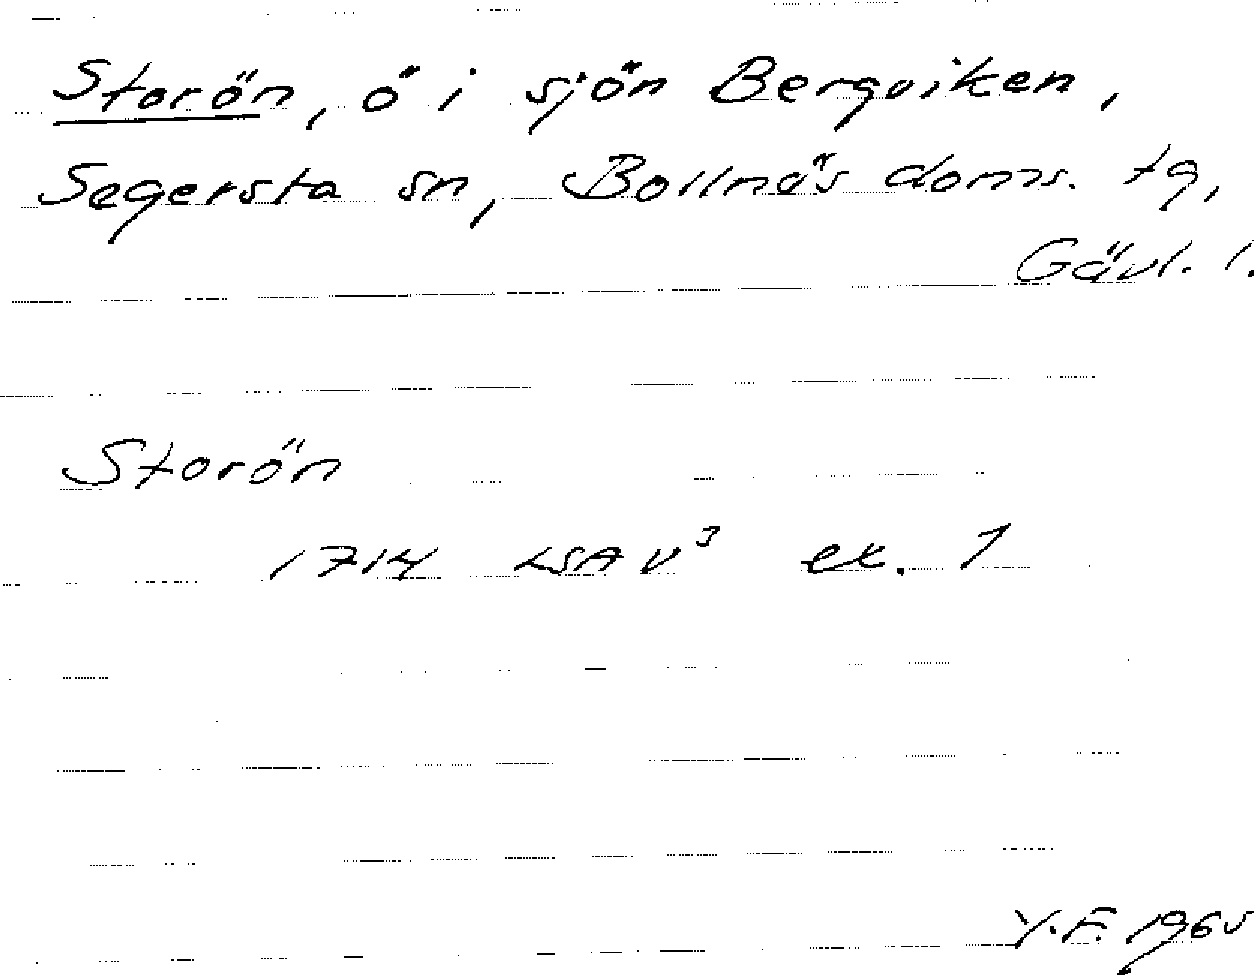 Storön, ö i sjön Bergviken,
Segersta sn, Bollnäs doms. tg,
Gävl. l.
Storön
1714 LSA V³ ek. 1
Y.F. 1965